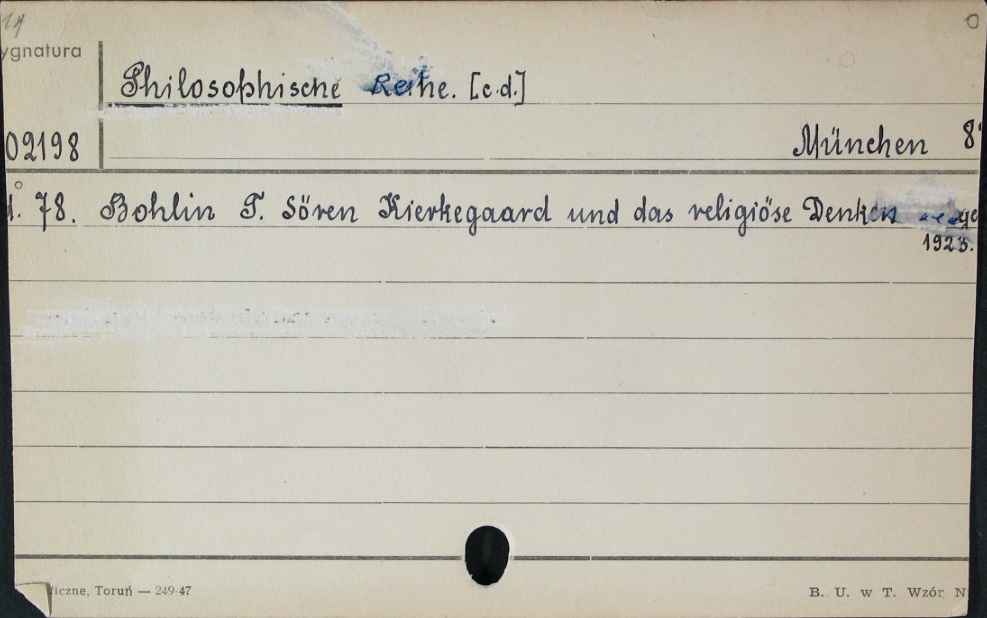 ygnatura
Philosophische Reihe. [c.d.]
02198
München 8°
78. Bohlin T. Sören Kierkegaard und das religiöse Denken
1923.
iczne, Toruń — 249-47
B. U. w T. Wzór N